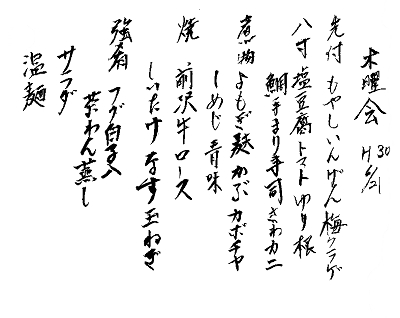 木曜会 H30 6/21
先付 もやしいんげん梅クラゲ
八寸 塩豆腐 トマト ゆり根
鯛手まり寿司 さわカニ
煮物 よもぎ麸 かぶ カボチャ
しめじ 青味
焼 前沢牛ロース
しいたけ なす 玉ねぎ
強肴 フグ白子入
茶わん蒸し
サラダ
温麺